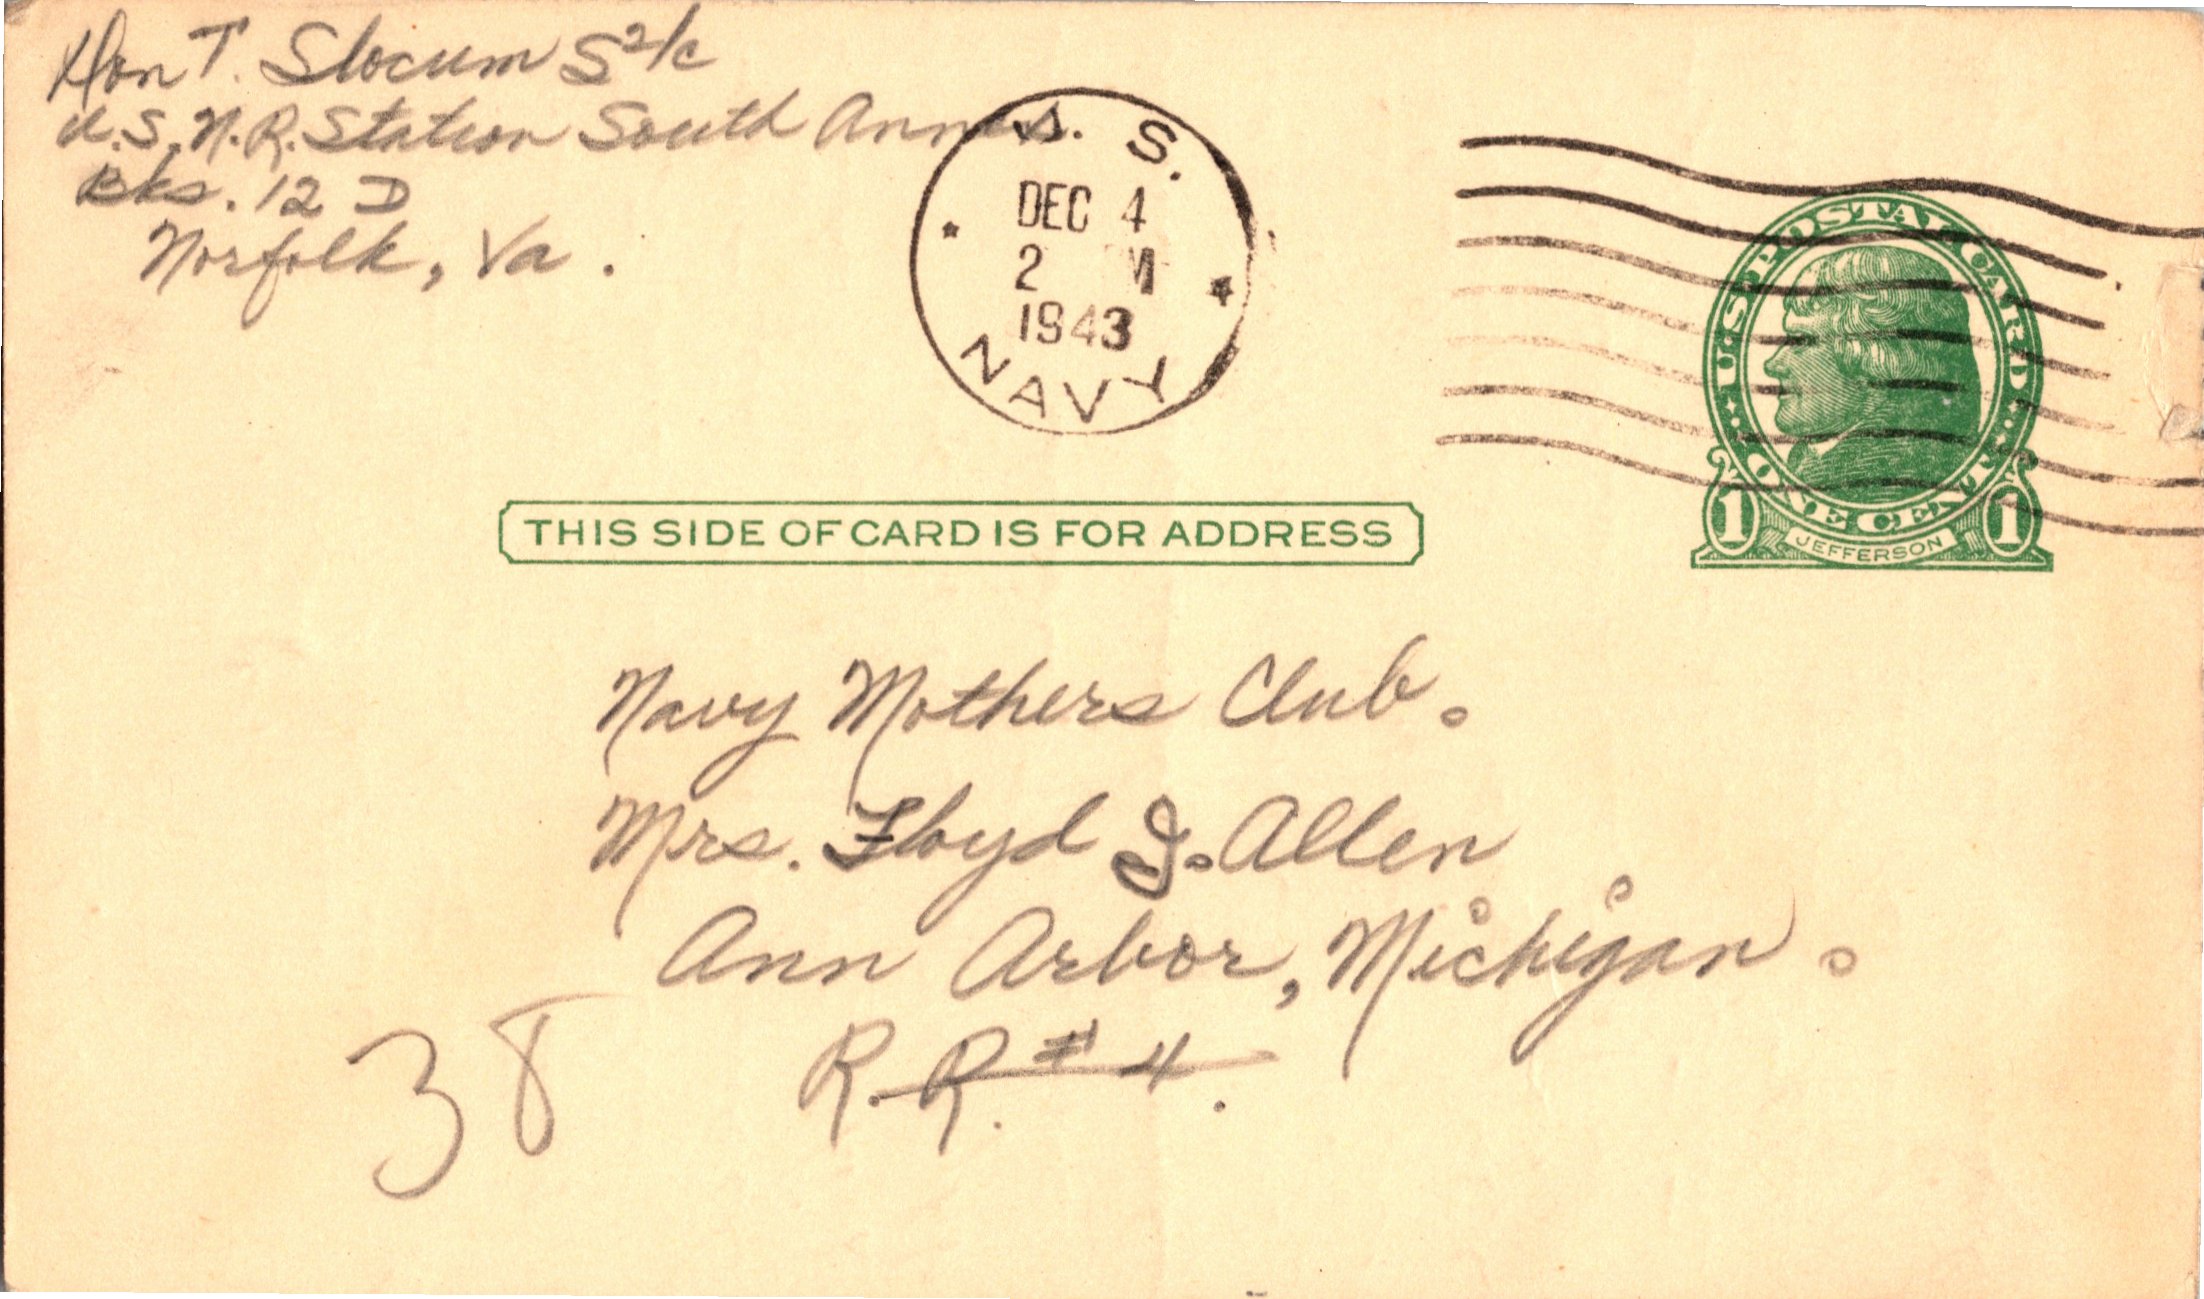 Don T. Slocum S2/c
U.S.N.R. Station South Annex
Bks. 12 D
Norfolk, Va.
U. S.
DEC 4
2 M
1943
NAVY
U.S. POSTAL CARD
ONE CENT
1 JEFFERSON 1
THIS SIDE OF CARD IS FOR ADDRESS
Navy Mothers Club.
Mrs. Floyd J. Allen
Ann Arbor, Michigan.
R.R. #4.
38